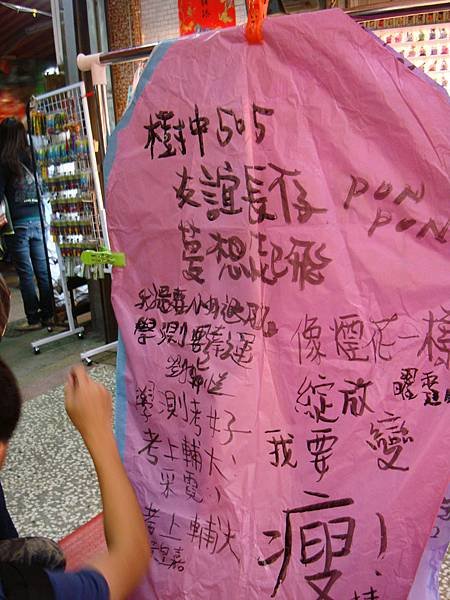 樹中505
友誼長存
夢想起飛
PON
PON
學測幸運
學測考好、
考上輔大、
采霓
考上輔大
像煙花一樣
綻放
我要變
瘦!